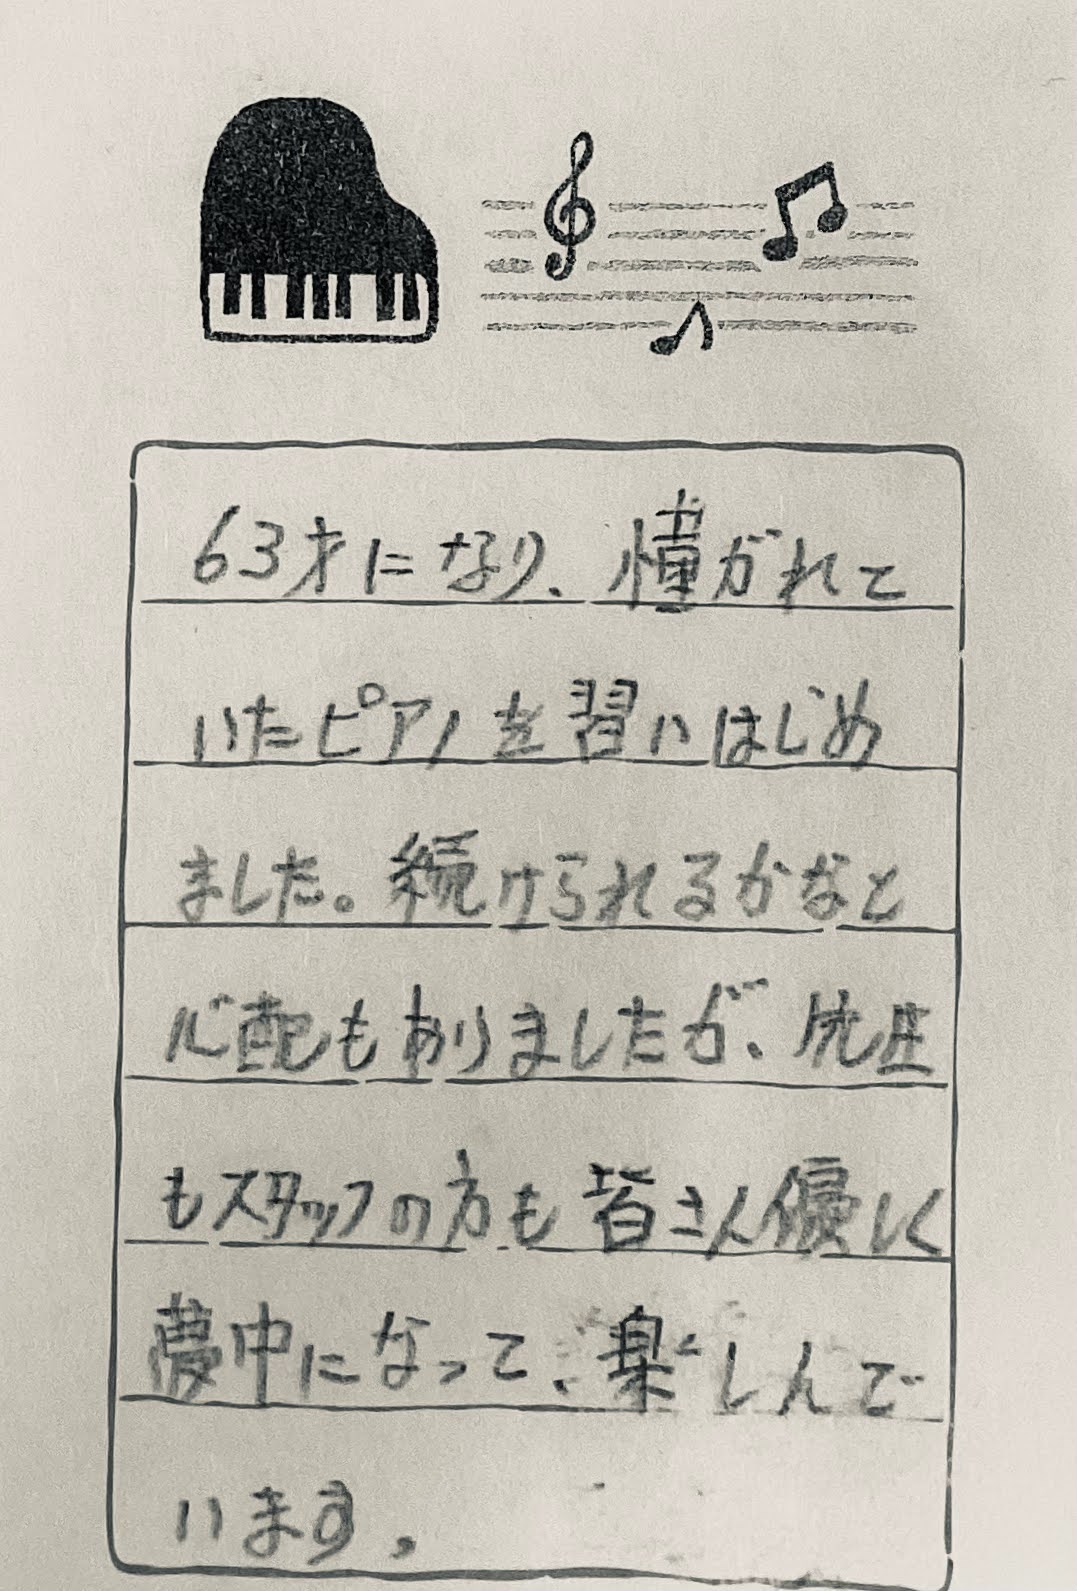 63才になり、憧がれて
いたピアノを習いはじめ
ました。続けられるかなと
心配もありましたが、先生
もスタッフの方も皆さん優しく
夢中になって、楽しんで
います。